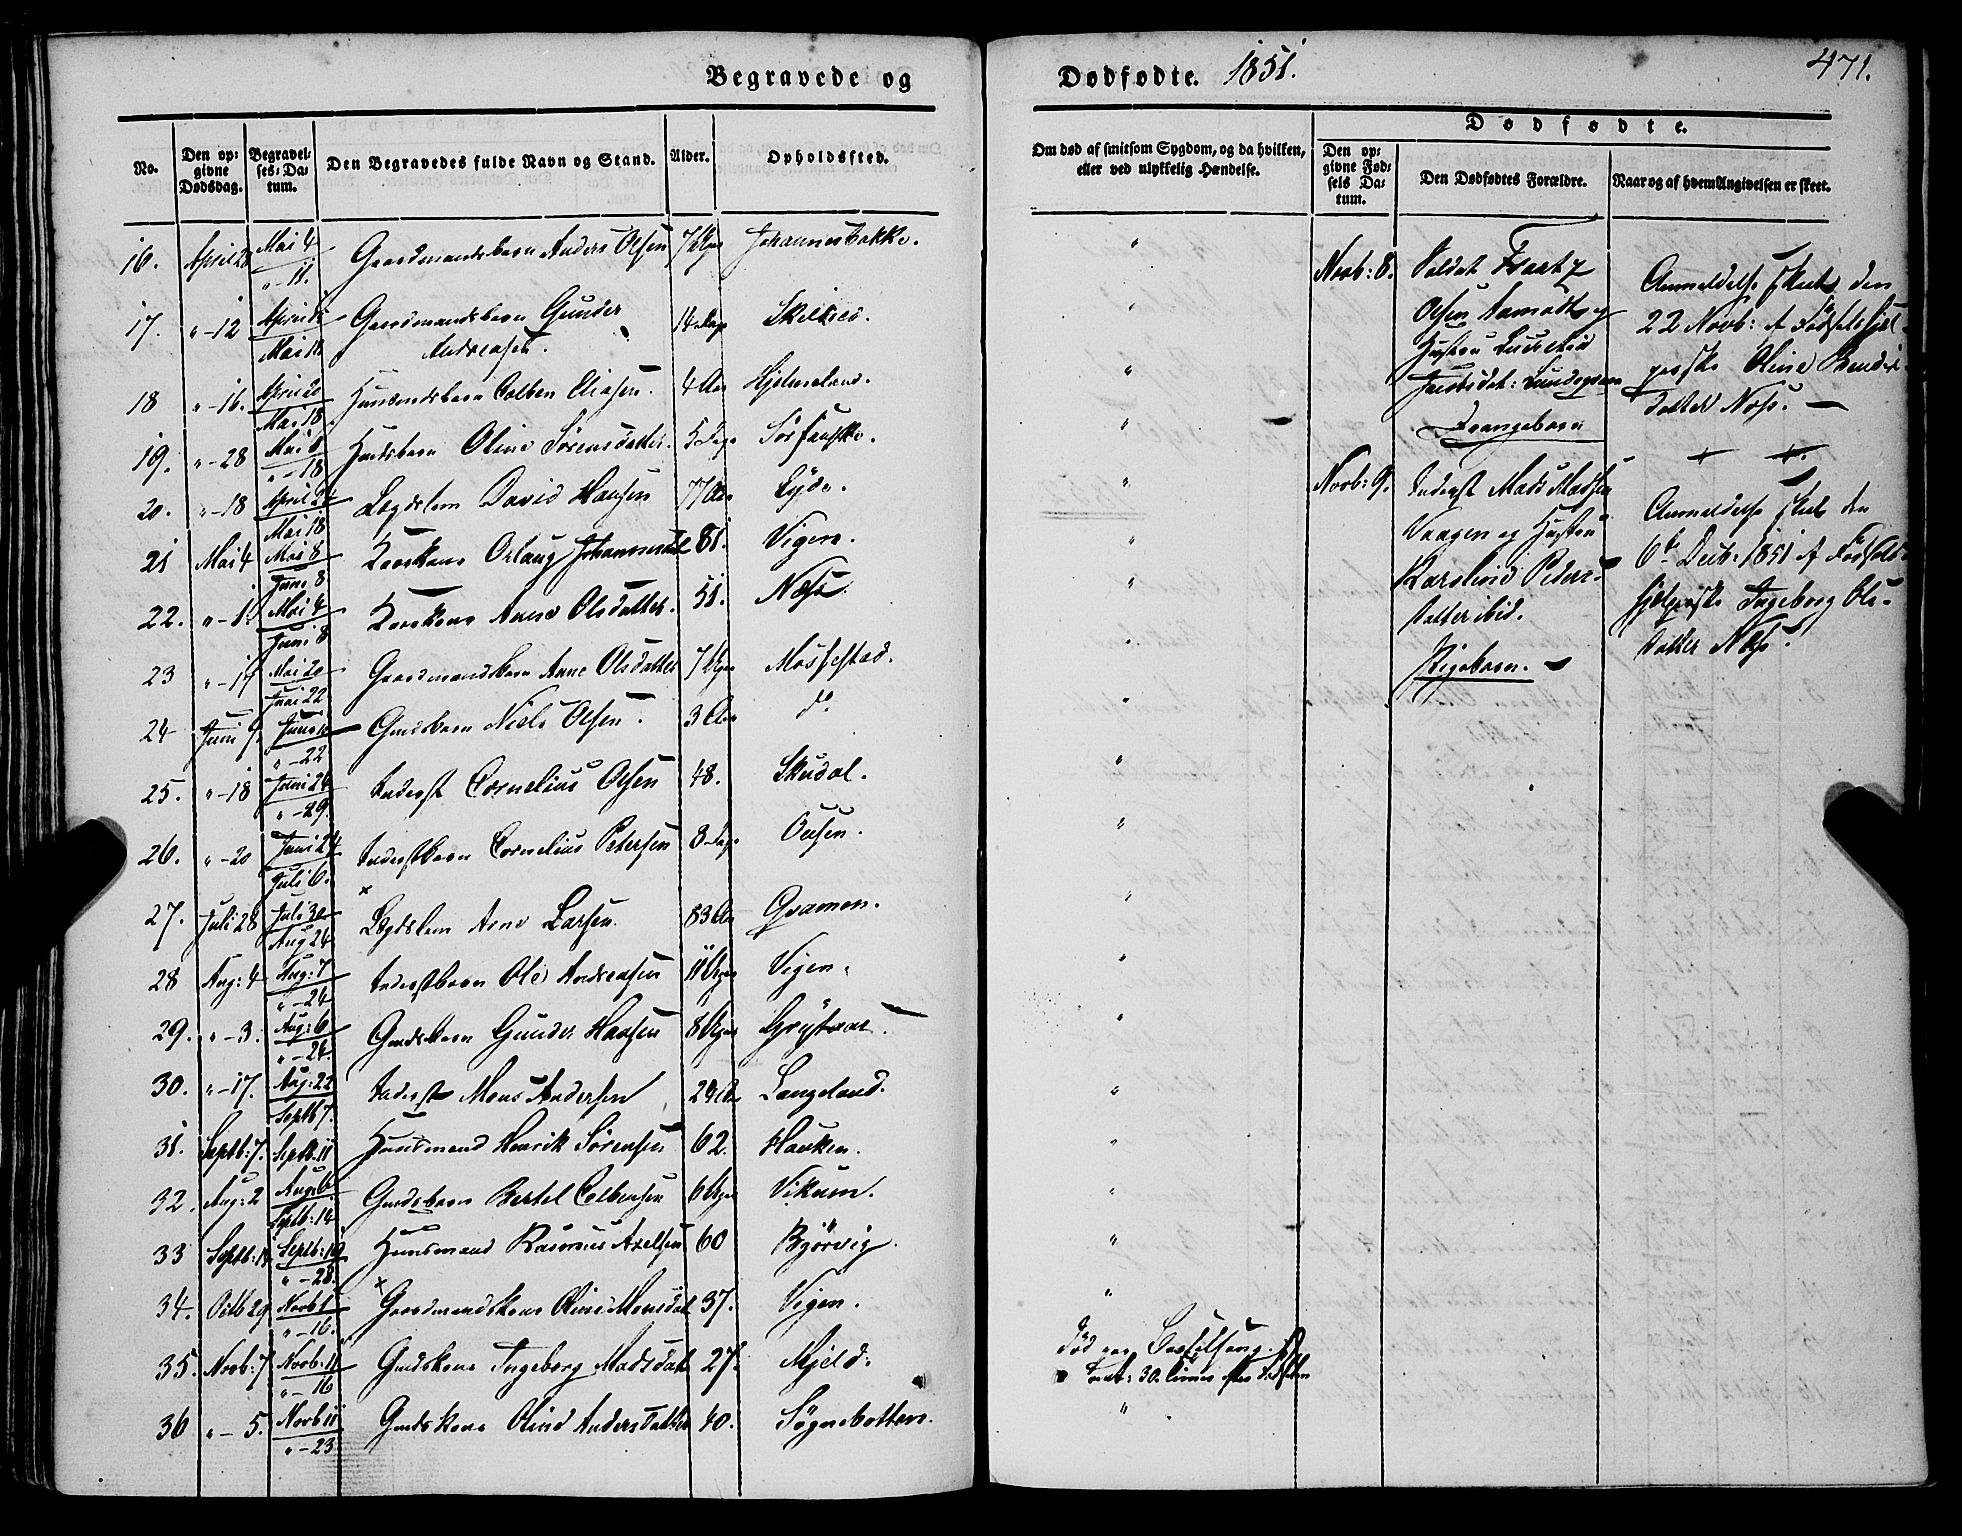 Begravede og
No.
Den opgivne Dødsdag.
Begravelses-Datum.
Den Begravedes fulde Navn og Stand.
Alder.
Opholdssted.
16. April 28 Mai 4 " - 11. Gaardmandsbarn Anders Olsen 7 Johannesbakke.
17. " - 12 April Mai 18 Gaardmandsbarn Gunder 14 Dage
Andreasen.
18 " - 16. April 20 Mai 18. Huusmandsbarn Colben Eliasen. 4 Aar Hjelmeland.
19. " - 28 Mai 8 " - 18 Oline Sørensdatter. 5 Dage
20. " - 18 April 24 Mai 18 Lægdslem David Hansen 77 Aar Eyde.
21 Mai 4 Mai 8 Juni 8 Orlaug Johannesdat 81. Vigen.
22. " - 1. Mai 4 Juni 8 Anne Olsdatter. 51. Næss.
23 " - 17 Mai 20 Juni 22 Gaardmandsbarn Anne Olsdatter 7 Mossestad.
24 Juni 9. " - 22 Gmdsbarn Niels Olsen. 3 Aar do
25. " - 18 Juni 24 " - 29. Inderst Cornelius Olsen 48. Skudal.
26. " - 20 Juni 24 Juli 6. Inderstbarn Cornelius Petersen 8 Dage Ousen.
27. Juli 28 Juli 30 Aug 24 Lægdslem Arne Larsen. 83 Aar Qvamen.
28 Aug: 4 Aug: 7 " - 24 Inderstbarn Ole Andreasen 11 Vigen.
29. " - 3. Aug: 6 " - 24. Gmdsbarn Gunder Hansen 8
30. " - 17. Aug: 22 Septb 7. Inderst Mons Andersen 29 Aar Langeland.
31. Septb: 7. Septb. 11 Huusmand Henrik Sørensen 62. Hauken.
32. Aug: 2 Aug: 6 Septb: 14 Gmdsbarn Bertel Colbensen 6 Vikum.
33 Septb: 14 Septb: 19 " - 28. Huusmand Rasmus Axelsen 60 Bjørvig.
34. Octb 29 Novb 1 " - 16. Gaardmandskone Oline Monsdat 37. Vigen.
35. Novb: 7 Novb: 11 " - 16 Gmdskone Ingeborg Madsdat 27. Mjeld.
36 " - 5. Novb 11 " - 23 Gmdskone Oline Andersdatter 40. Søgnebotten.
Dødfødte. 1851.
471.
Om død af smitsom Sygdom, og da hvilken, eller ved ulykkelig Hændelse.
Dødfødte.
Den opgivne Fødsels Datum.
Den Dødfødtes Forældre.
Naar og af hvem Angivelsen er skeet.
Novb: 8. Soldat
Olsen Aamodt og
Hustru
Jacobsdat:
Drengebarn
Anmeldelse skeet den
22 Novb: af Fødselshjel-
perske Oline Bendix-
datter Næss.
Novb: 9. Inderst Mads Madsen
Vaagen og Hustru
Peders-
datter ibid.
Pigebarn.
Anmeldelse skeet den
6te Decb: 1851 af Fødsels-
hjelperske Ingeborg Ols-
datter Næss.
død paa Barselseng
30. Timer efter